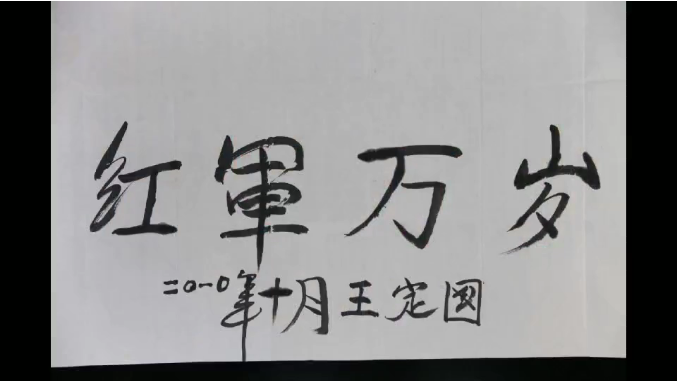 红軍万岁
二〇一〇年十月王定國